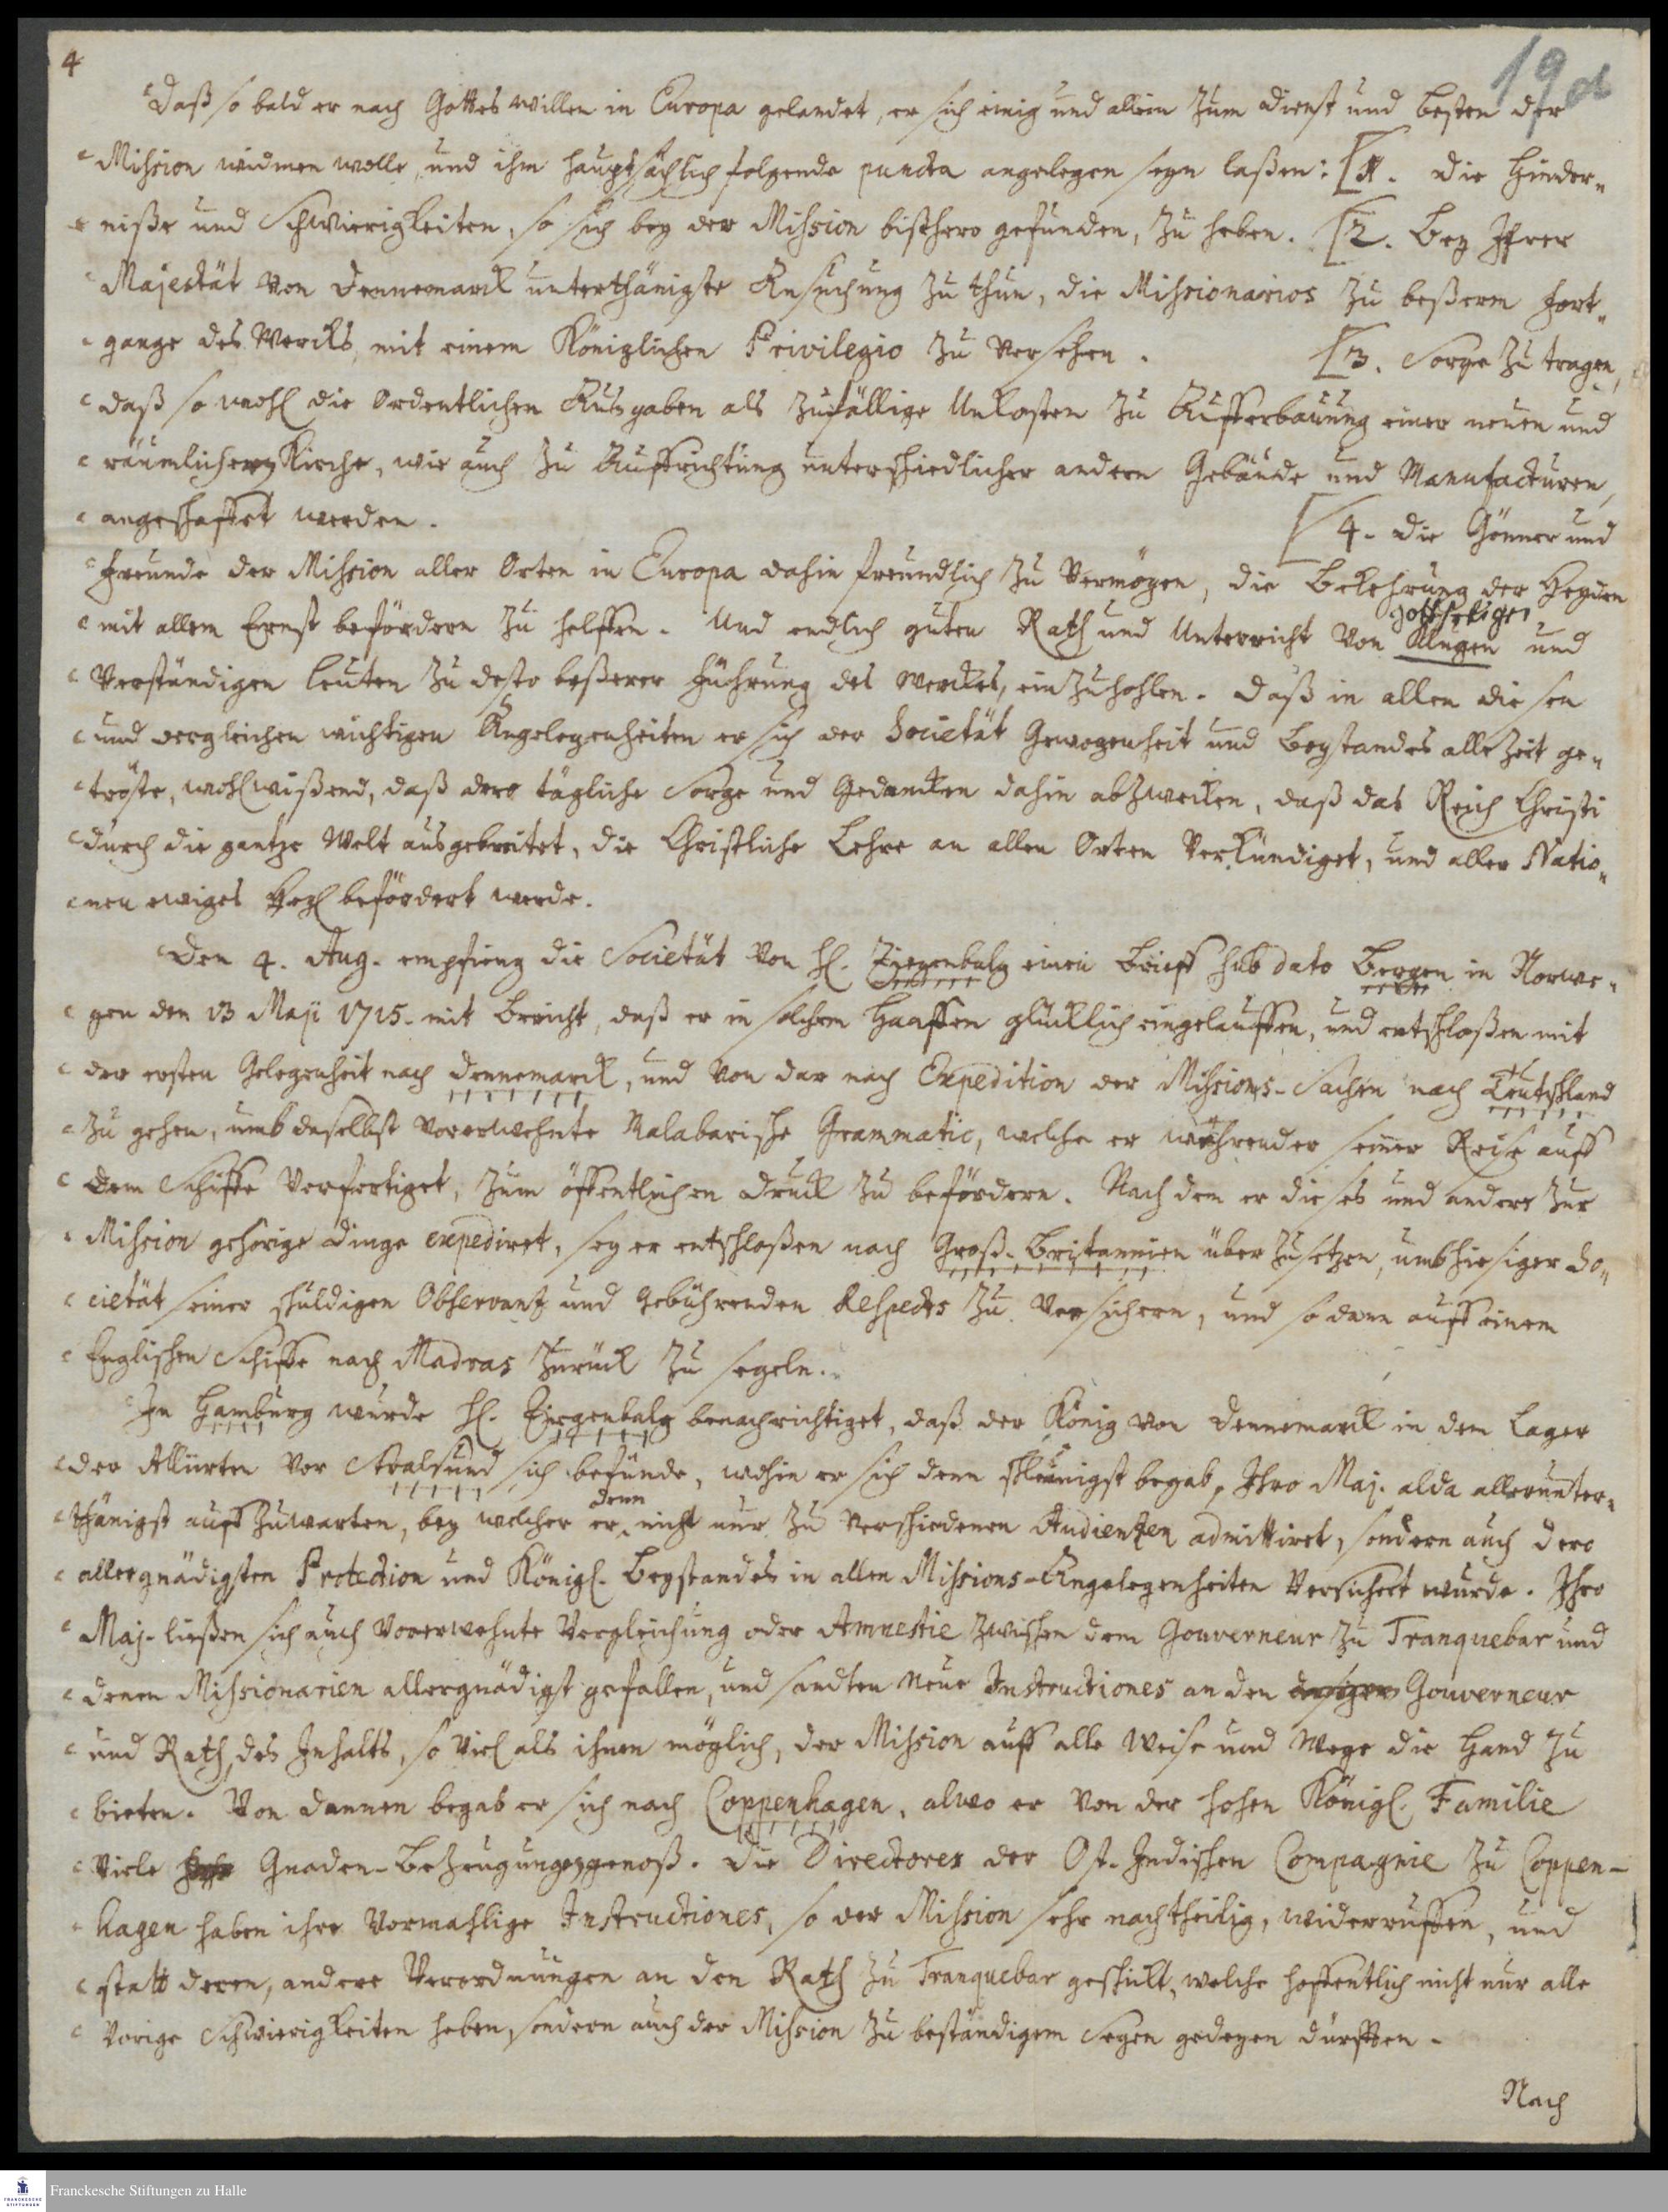 4
19d
Daß so bald er nach Gottes willen in Europa gelandet, er sich einig und allein zum Dienst und besten der
Mission widmen wolle, und ihm hauptsächlich folgende puncta angelegen seyn laßen: [1. Die Hinder„
niße und Schwierigkeiten, so sich bey der Mission bißhero gefunden, zu heben. [2. Bey Ihrer
Majestät von Dennemarck unterthänigste Ansuchung zu thun, die Missionarios zu beßerm Fort„
gange des Wercks, mit einem Königlichen Privilegio zu versehen. [3. Sorge zu tragen,
daß so wohl die Ordentlichen Ausgaben als zufällige Unkosten zu Aufferbauung einer neuen und
räumlichern Kirche, wie auch zu Auffrichtung unterschiedlicher andern Gebäude und Manufacturen,
angeschaffet werden. [4. Die Gönner und
Freunde der Mission aller Orten in Europa dahin freundlich zu vermögen, die Bekehrung der Heyden
gottseligen
mit allem Ernst befördern zu helffen. Und endlich guten Rath und Unterricht von Klugen und
Verständigen Leuten zu desto beßerer Führung des Werckes, einzuhohlen. Daß in allen diesen
und dergleichen wichtigen Angelegenheiten er sich der Societät Gewogenheit und Beystandes allezeit ge„
tröste, wohlwißend, daß dero tägliche Sorge und Gedancken dahin abzwecken, daß das Reich Christi
durch die gantze Welt ausgebreitet, die Christliche Lehre an allen Orten verkündiget, und aller Natio„
nen ewiges Heyl befördert werde.
Den 4. Aug. empfieng die Societät von H. Ziegenbalg einen Brieff sub dato Bergen in Norwe„
gen den 13 Maji 1715. mit Bericht, daß er in solchem Haaffen glücklich eingelauffen, und entschloßen mit
der ersten Gelegenheit nach Dennemarck, und von dar nach Expedition der Missions-Sachen nach Teutschland
zu gehen, umb daselbst vorerwehnte Malabarische Grammatic, welche er währender seiner Reise auff
dem Schiffe verfertiget, zum öffentlichen Druck zu befördern. Nach dem er dieses und andere zur
Mission gehörige Dinge expediret, sey er entschloßen nach Groß-Britannien über zusetzen, umb hiesiger So„
cietät seiner schuldigen Observantz und gebührenden Respects zu versichern, und so dann auff einem
Englischen Schiffe nach Madras zurück zu segeln.
In Hamburg wurde H. Ziegenbalg benachrichtiget, daß der König von Dennemarck in dem Lager
der Alliirten vor Stralsund sich befünde, wohin er sich denn schleunigst begab, Ihro Maj. alda allerunter„
denn
thänigst auffzuwarten, bey welcher er nicht nur zu verschiedenen Audientzen admittiret, sondern auch dero
allergnädigsten Protection und Königl. Beystandes in allen Missions-Angelegenheiten versichert wurde. Ihro
Maj. ließen sich auch vorerwehnte Vergleichung oder Amnestie zwischen dem Gouverneur zu Tranquebar und
denen Missionarien allergnädigst gefallen, und sandten neue Instructiones an den Gouverneur
und Rath, des Inhalts, so viel als ihnen möglich, der Mission auff alle Weise und Wege die Hand zu
bieten. Von dannen begab er sich nach Coppenhagen, alwo er von der hohen Königl. Familie
viele hohe Gnaden-Bezeugungen genoß. Die Directores der Ost-Indischen Compagnie zu Coppen-
hagen haben ihre vormahlige Instructiones, so der Mission sehr nachtheilig, widerruffen, und
statt deren, andere Verordnungen an den Rath zu Tranquebar geschickt, welche hoffentlich nicht nur alle
vorige Schwierigkeiten heben, sondern auch der Mission zu beständigem Segen gedeyen dürfften.
Nach
FRANCKESCHE STIFTUNGEN
Franckesche Stiftungen zu Halle